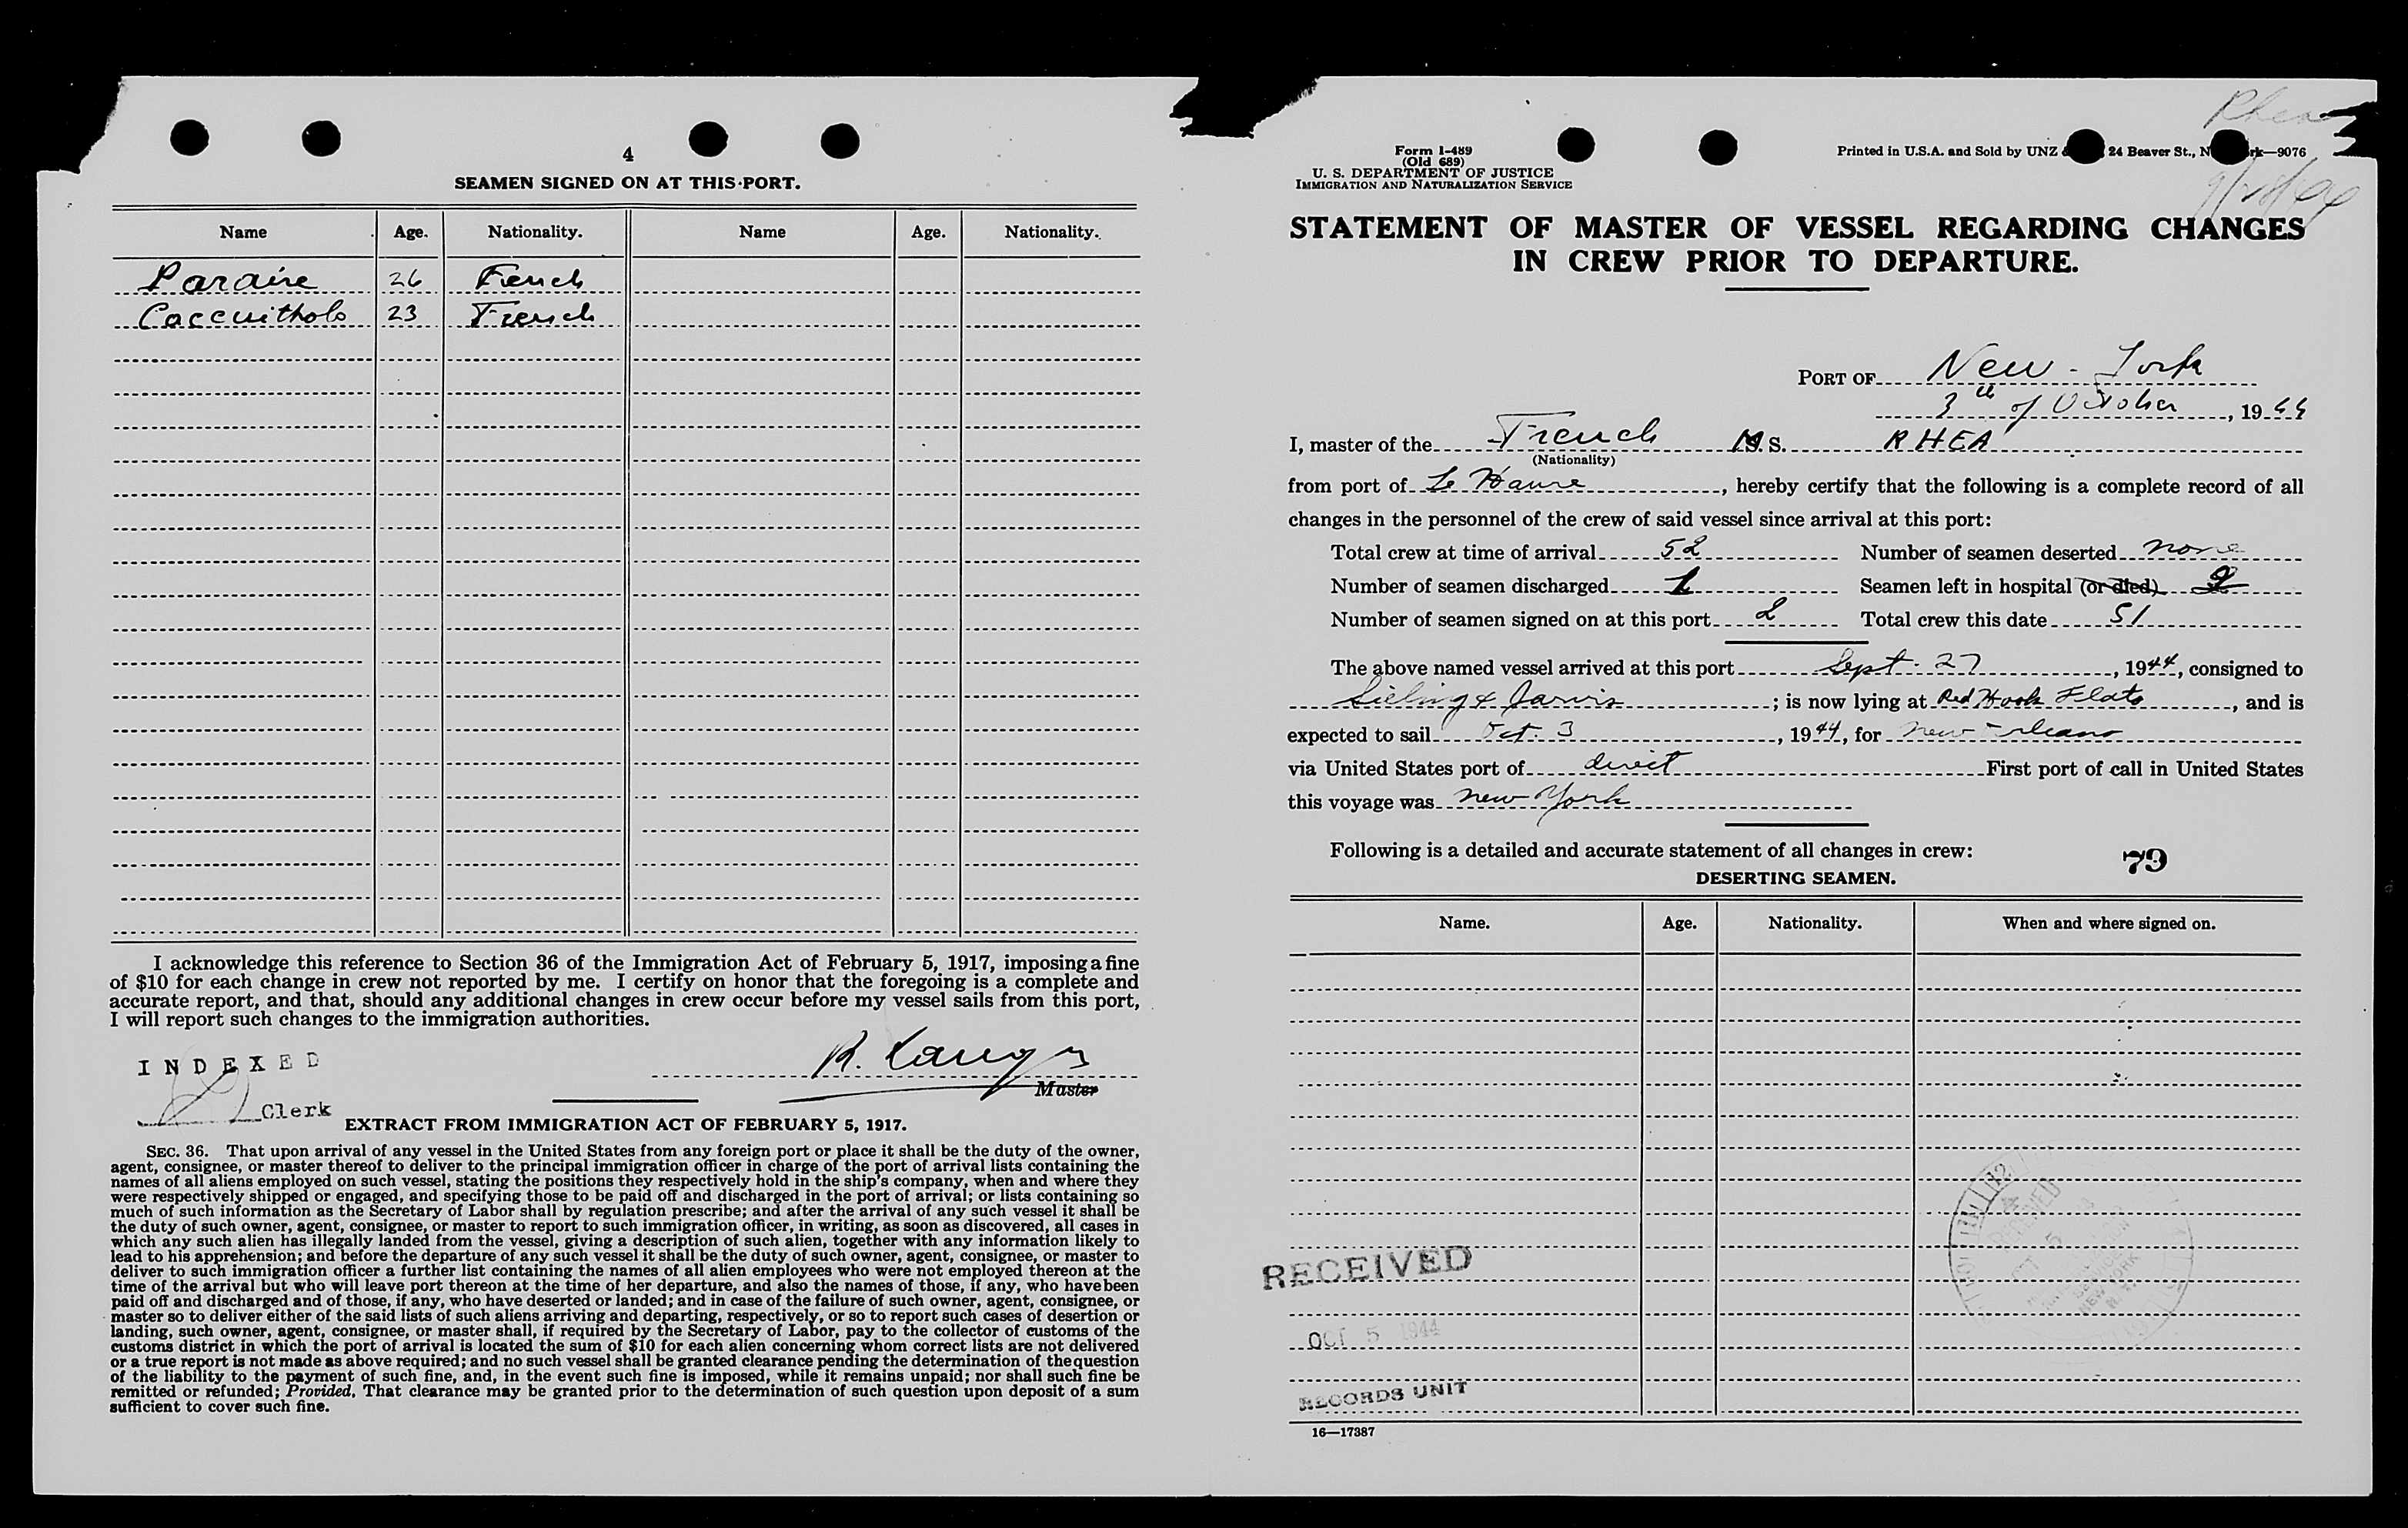 4
SEAMEN SIGNED ON AT THIS PORT.
Name Age. Nationality. Name Age. Nationality.
Paraire 26 French
Coccuitholo 23 French
I acknowledge this reference to Section 36 of the Immigration Act of February 5, 1917, imposing a fine
of $10 for each change in crew not reported by me. I certify on honor that the foregoing is a complete and
accurate report, and that, should any additional changes in crew occur before my vessel sails from this port,
I will report such changes to the immigration authorities.
INDEXED
R.
Master
Clerk
EXTRACT FROM IMMIGRATION ACT OF FEBRUARY 5, 1917.
SEC. 36. That upon arrival of any vessel in the United States from any foreign port or place it shall be the duty of the owner,
agent, consignee, or master thereof to deliver to the principal immigration officer in charge of the port of arrival lists containing the
names of all aliens employed on such vessel, stating the positions they respectively hold in the ship's company, when and where they
were respectively shipped or engaged, and specifying those to be paid off and discharged in the port of arrival; or lists containing so
much of such information as the Secretary of Labor shall by regulation prescribe; and after the arrival of any such vessel it shall be
the duty of such owner, agent, consignee, or master to report to such immigration officer, in writing, as soon as discovered, all cases in
which any such alien has illegally landed from the vessel, giving a description of such alien, together with any information likely to
lead to his apprehension; and before the departure of any such vessel it shall be the duty of such owner, agent, consignee, or master to
deliver to such immigration officer a further list containing the names of all alien employees who were not employed thereon at the
time of the arrival but who will leave port thereon at the time of her departure, and also the names of those, if any, who have been
paid off and discharged and of those, if any, who have deserted or landed; and in case of the failure of such owner, agent, consignee, or
master so to deliver either of the said lists of such aliens arriving and departing, respectively, or so to report such cases of desertion or
landing, such owner, agent, consignee, or master shall, if required by the Secretary of Labor, pay to the collector of customs of the
customs district in which the port of arrival is located the sum of $10 for each alien concerning whom correct lists are not delivered
or a true report is not made as above required; and no such vessel shall be granted clearance pending the determination of the question
of the liability to the payment of such fine, and, in the event such fine is imposed, while it remains unpaid; nor shall such fine be
remitted or refunded; Provided, That clearance may be granted prior to the determination of such question upon deposit of a sum
sufficient to cover such fine.
Rhea
Form I-489
(Old 689)
U. S. DEPARTMENT OF JUSTICE
IMMIGRATION AND NATURALIZATION SERVICE
Printed in U.S.A. and Sold by UNZ 24 Beaver St., —9076
STATEMENT OF MASTER OF VESSEL REGARDING CHANGES
IN CREW PRIOR TO DEPARTURE.
PORT OF New-York
3th of October, 1944
I, master of the French M. S. RHEA
(Nationality)
from port of Le Havre, hereby certify that the following is a complete record of all
changes in the personnel of the crew of said vessel since arrival at this port:
Total crew at time of arrival 52 Number of seamen deserted none
Number of seamen discharged 1 Seamen left in hospital (or died) 2
Number of seamen signed on at this port 2 Total crew this date 51
The above named vessel arrived at this port Sept. 27, 1944, consigned to
& Jarvis; is now lying at Red Hook Flats, and is
expected to sail Oct. 3, 1944, for New Orleans
via United States port of direct First port of call in United States
this voyage was New York
Following is a detailed and accurate statement of all changes in crew:
79
DESERTING SEAMEN.
Name. Age. Nationality. When and where signed on.
RECEIVED
OCT 5 1944
RECORDS UNIT
RECEIVED
NEW YORK
16—17387